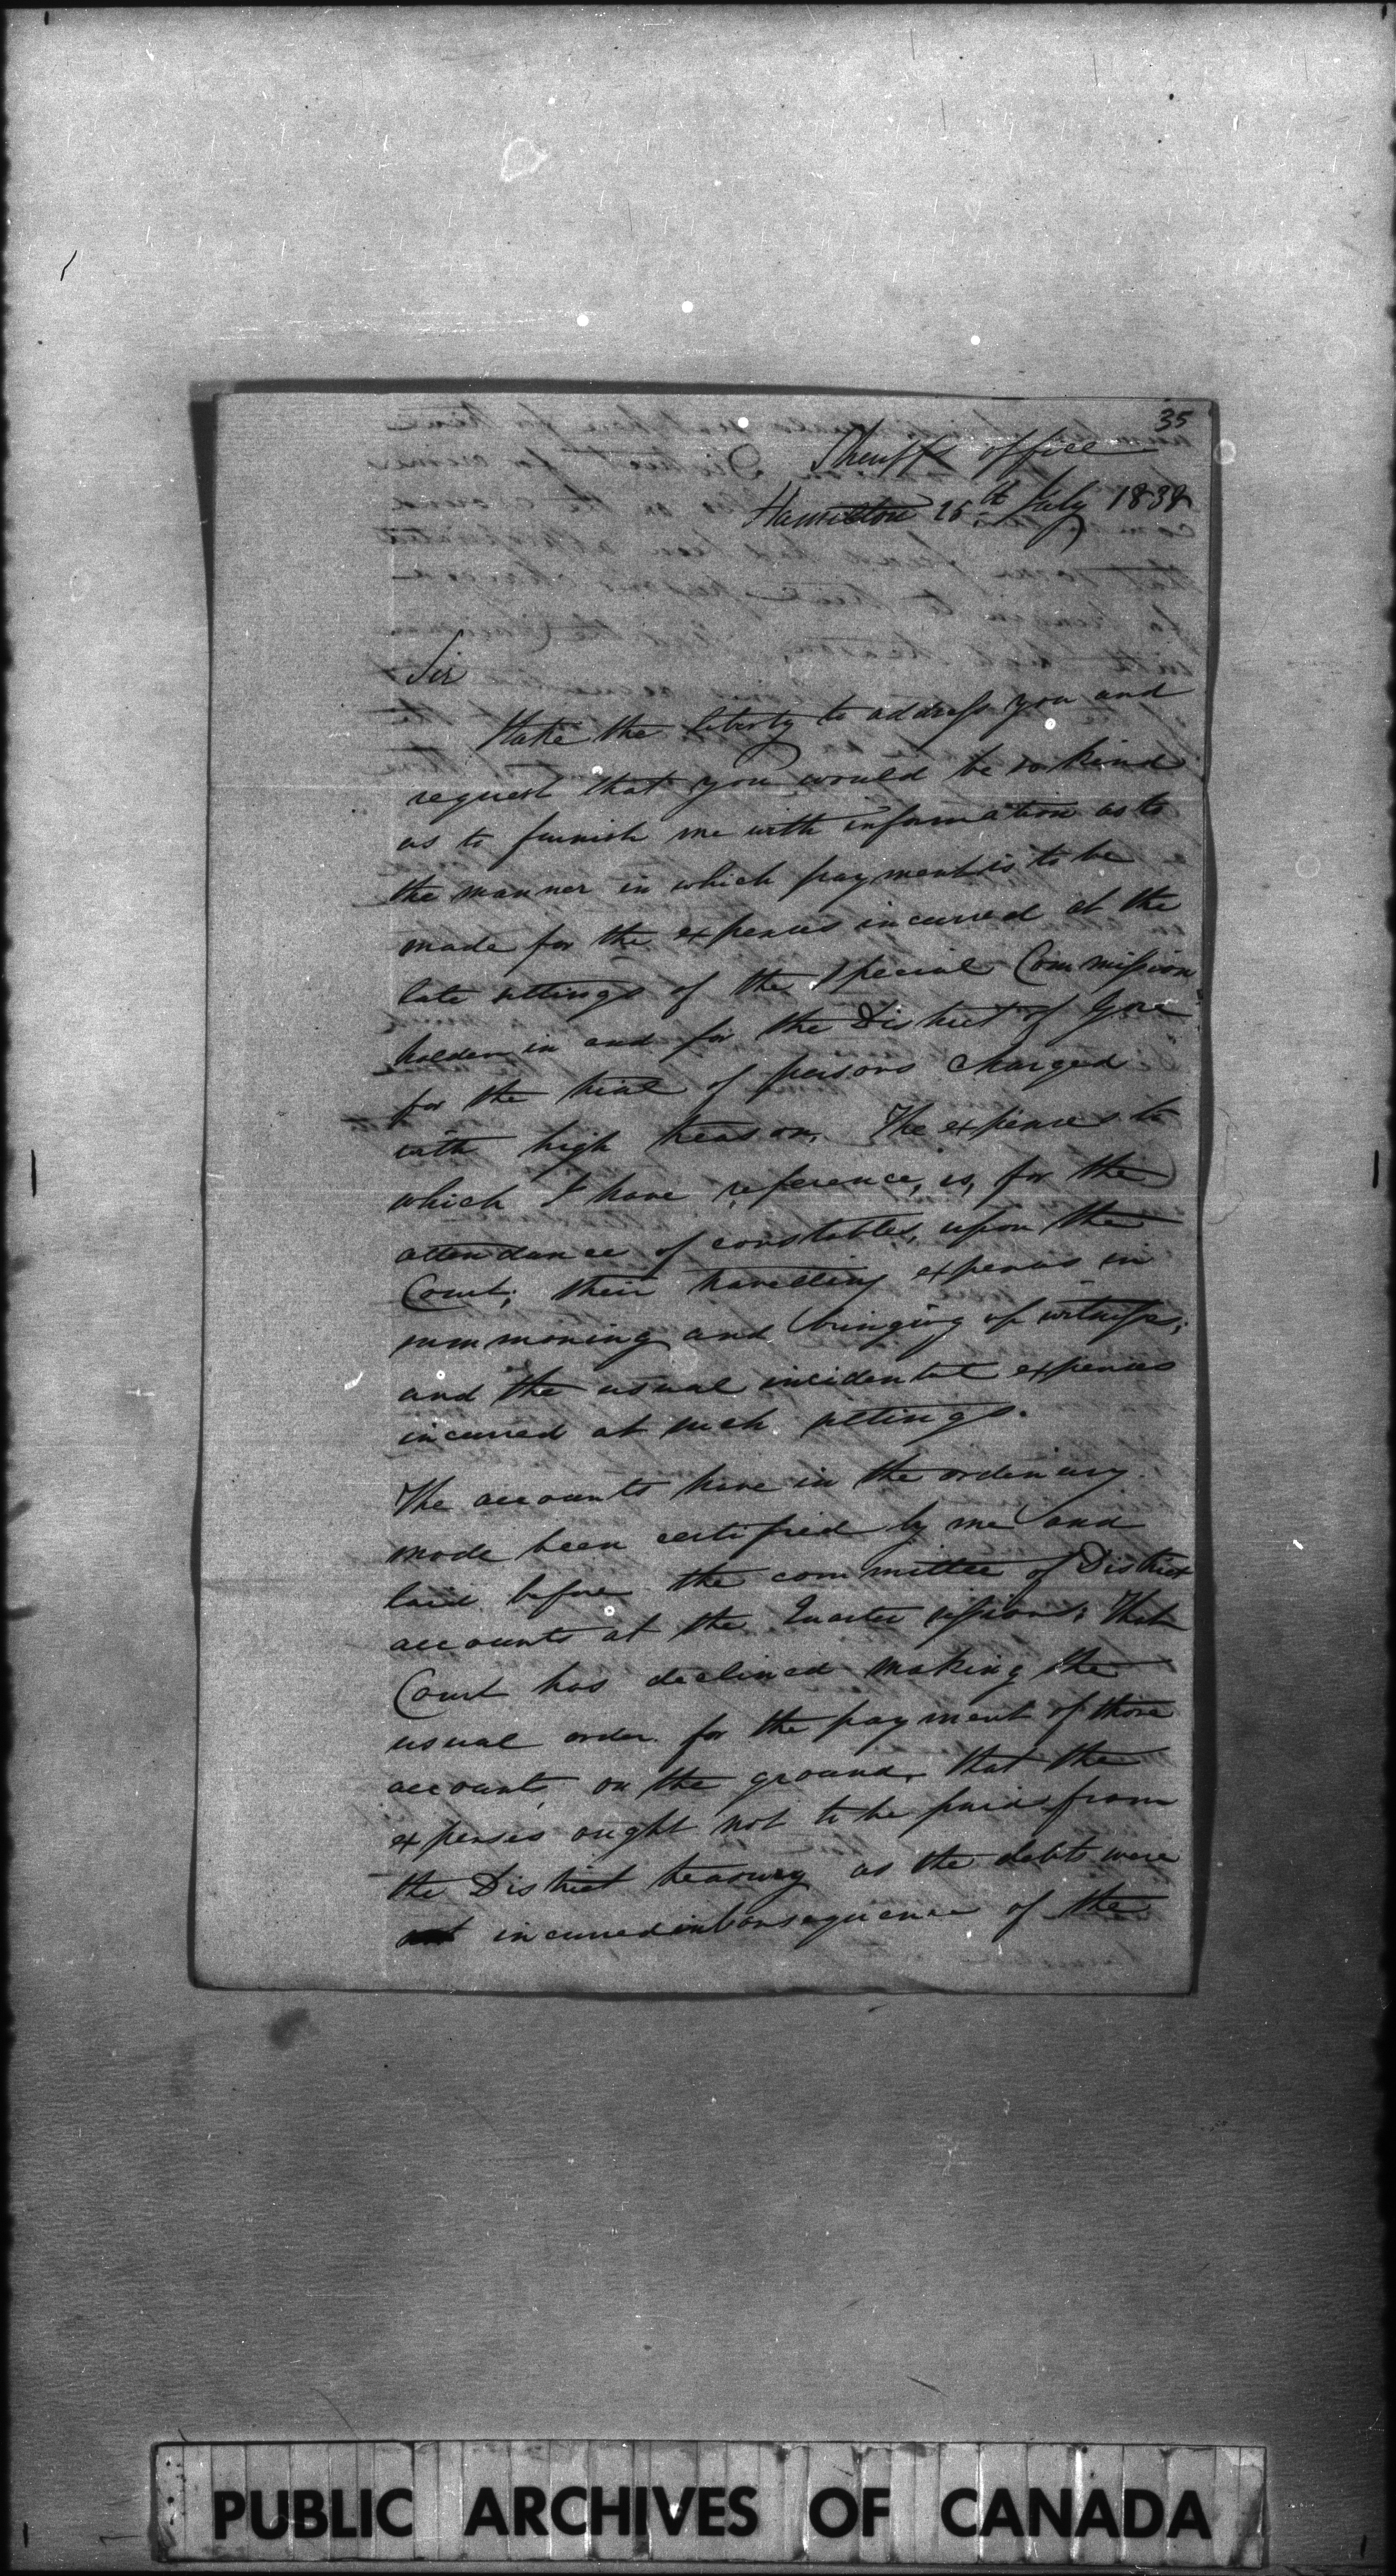 35
Sheriffs office
Hamilton 25th July 1838
Sir
I take the liberty to address you and
request that you would be so kind
as to furnish me with information as to
the manner in which payment is to be
made for the expences incurred at the
late sittings of the Special Commission
holden in and for the District of Gore
for the trial of persons charged
with high treason. The expences to
which I have reference, is, for the
attendance of constables, upon the
Court; their travelling expences in
summoning and bringing up witness;
and the usual incidental expences
incurred at such sittings.
The accounts have in the ordinary
mode been certified by me and
laid before the committee of District
accounts at the Quarter sessions; That
Court has declined making the
usual order for the payment of those
accounts, on the ground, that the
expenses ought not to be paid from
the District treasury as the debts were
incurred in consequence of the
PUBLIC ARCHIVES OF CANADA